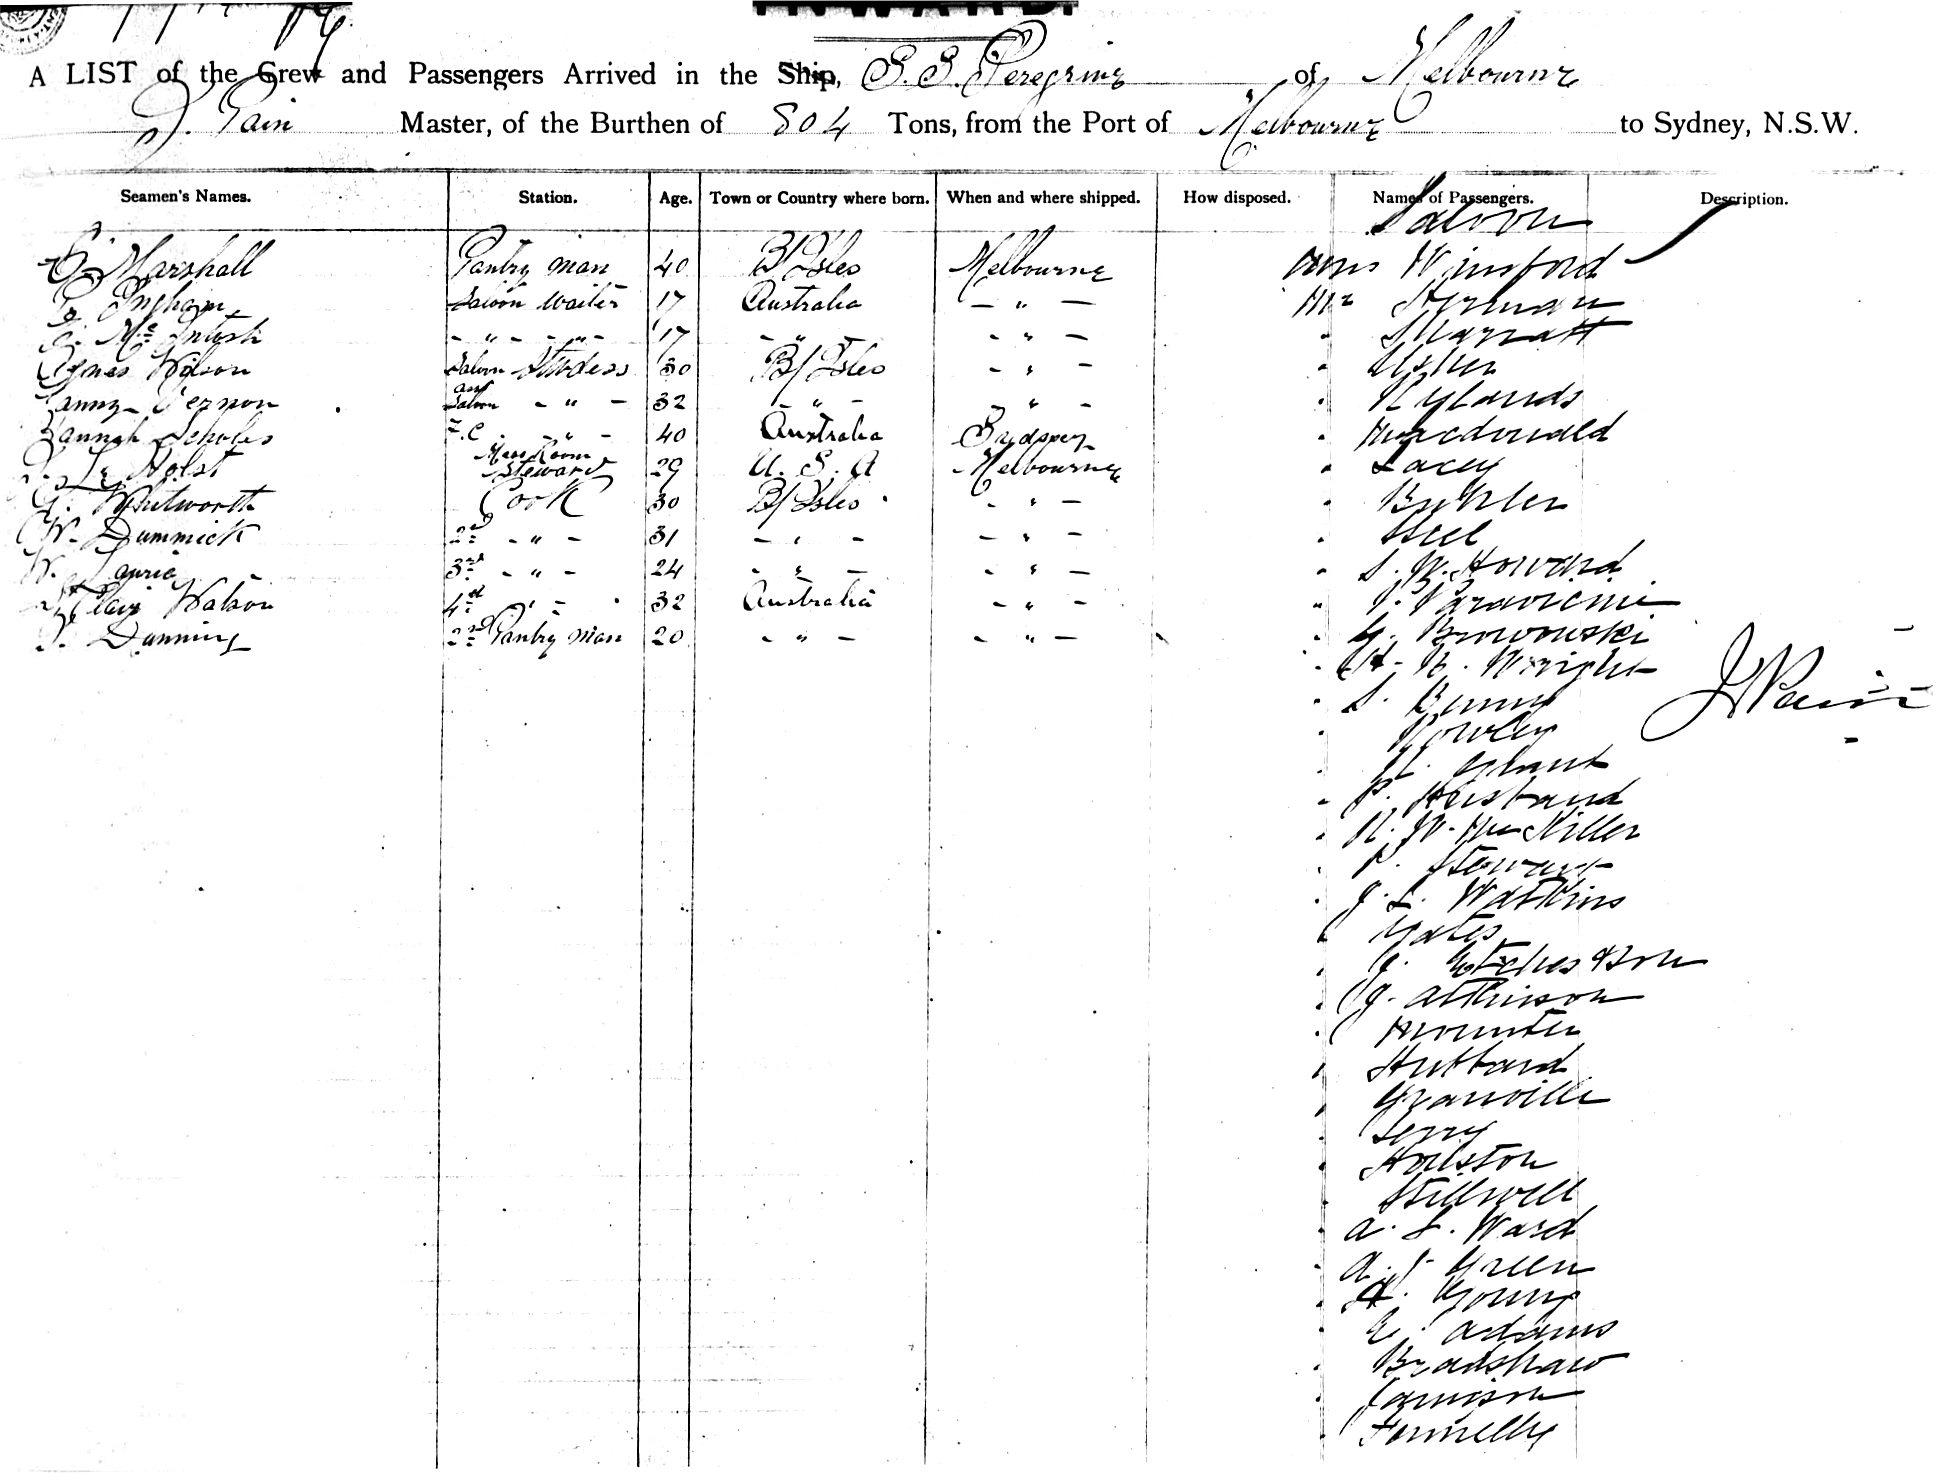 INWARD.
A LIST of the Crew and Passengers Arrived in the Ship, S. S. Peregrine of Melbourne
J. Pain Master, of the Burthen of 804 Tons, from the Port of Melbourne to Sydney, N.S.W.
Seamen's Names. Station. Age. Town or Country where born. When and where shipped. How disposed. Names of Passengers. Description.
Saloon
Marshall Pantry man 40 B/Isles Melbourne Winsford
Ingham Saloon Waiter 17 Australia — " — Mr
Mc Intosh - " - - " - 17 - " - - " - Marratt
Agnes Wilson Saloon Stwdess 30 B/Isles - " - Usher
Fanny Vernon ass Saloon - " - 32 - " - - " - Rylands
Hannah Scholes F.C. - " - 40 Australia Macdonald
Holst Mess Room Steward 29 U. S. A Melbourne Lacey
G. Whitworth Cook 30 B/Isles - " - Buhler
W. Dummick 2nd - " - 31 - " - - " - Steel
W. 3rd - " - 24 - " - - " - S. W. Howard
Watson 4th - " - 32 Australia - " - Paravicini
Dunning 2nd Pantry man 20 - " - - " - G. Browowski
H. B. Wright
S. Benny J Pain
Rowley
Grant
P. Husband
R. W. MacKiller
P. Stewart
J. L. Watkins
Yates
J. & Son
J. Atkinson
Mounter
Hubbard
Granville
Terry
Houston
Stillwell
A. L. Ward
A. J. Green
H. Young
E. Adams
Bradshaw
Jamison
Fennelly